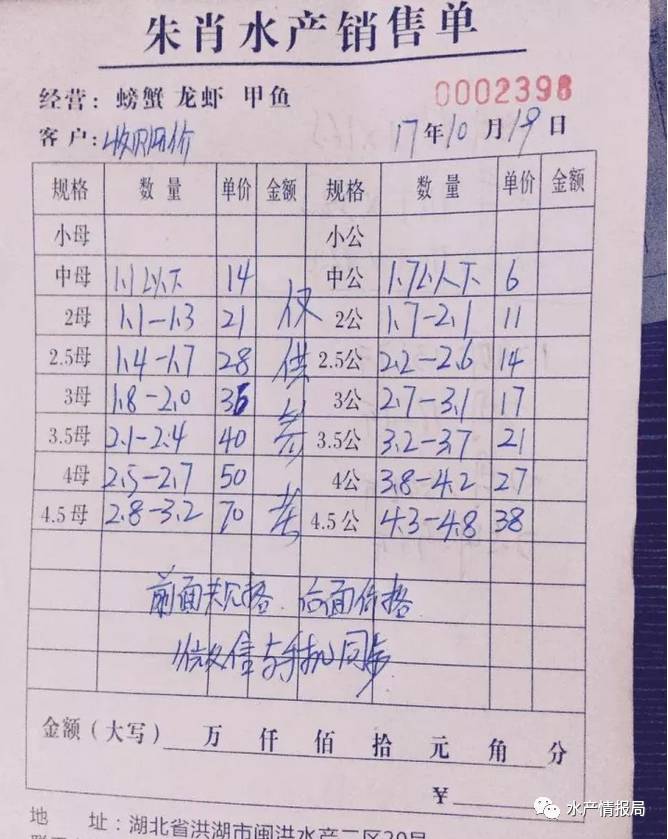 朱肖水产销售单
经营: 螃蟹 龙虾 甲鱼 0002398
客户: 收购价 17年10月19日
规格 数量 单价 金额 规格 数量 单价 金额
小母 小公
中母 1.1以下 14 中公 1.7以下 6
2母 1.1-1.3 21 仅 2公 1.7-2.1 11
2.5母 1.4-1.7 28 供 2.5公 2.2-2.6 14
3母 1.8-2.0 36 参 3公 2.7-3.1 17
3.5母 2.1-2.4 40 3.5公 3.2-3.7 21
4母 2.5-2.7 50 4公 3.8-4.2 27
4.5母 2.8-3.2 70 考 4.5公 4.3-4.8 38
前面规格 后面价格
微信与手机同步
金额(大写) 万 仟 佰 拾 元 角 分
¥
地 址:湖北省洪湖市闽洪水产二区29号
水产情报局